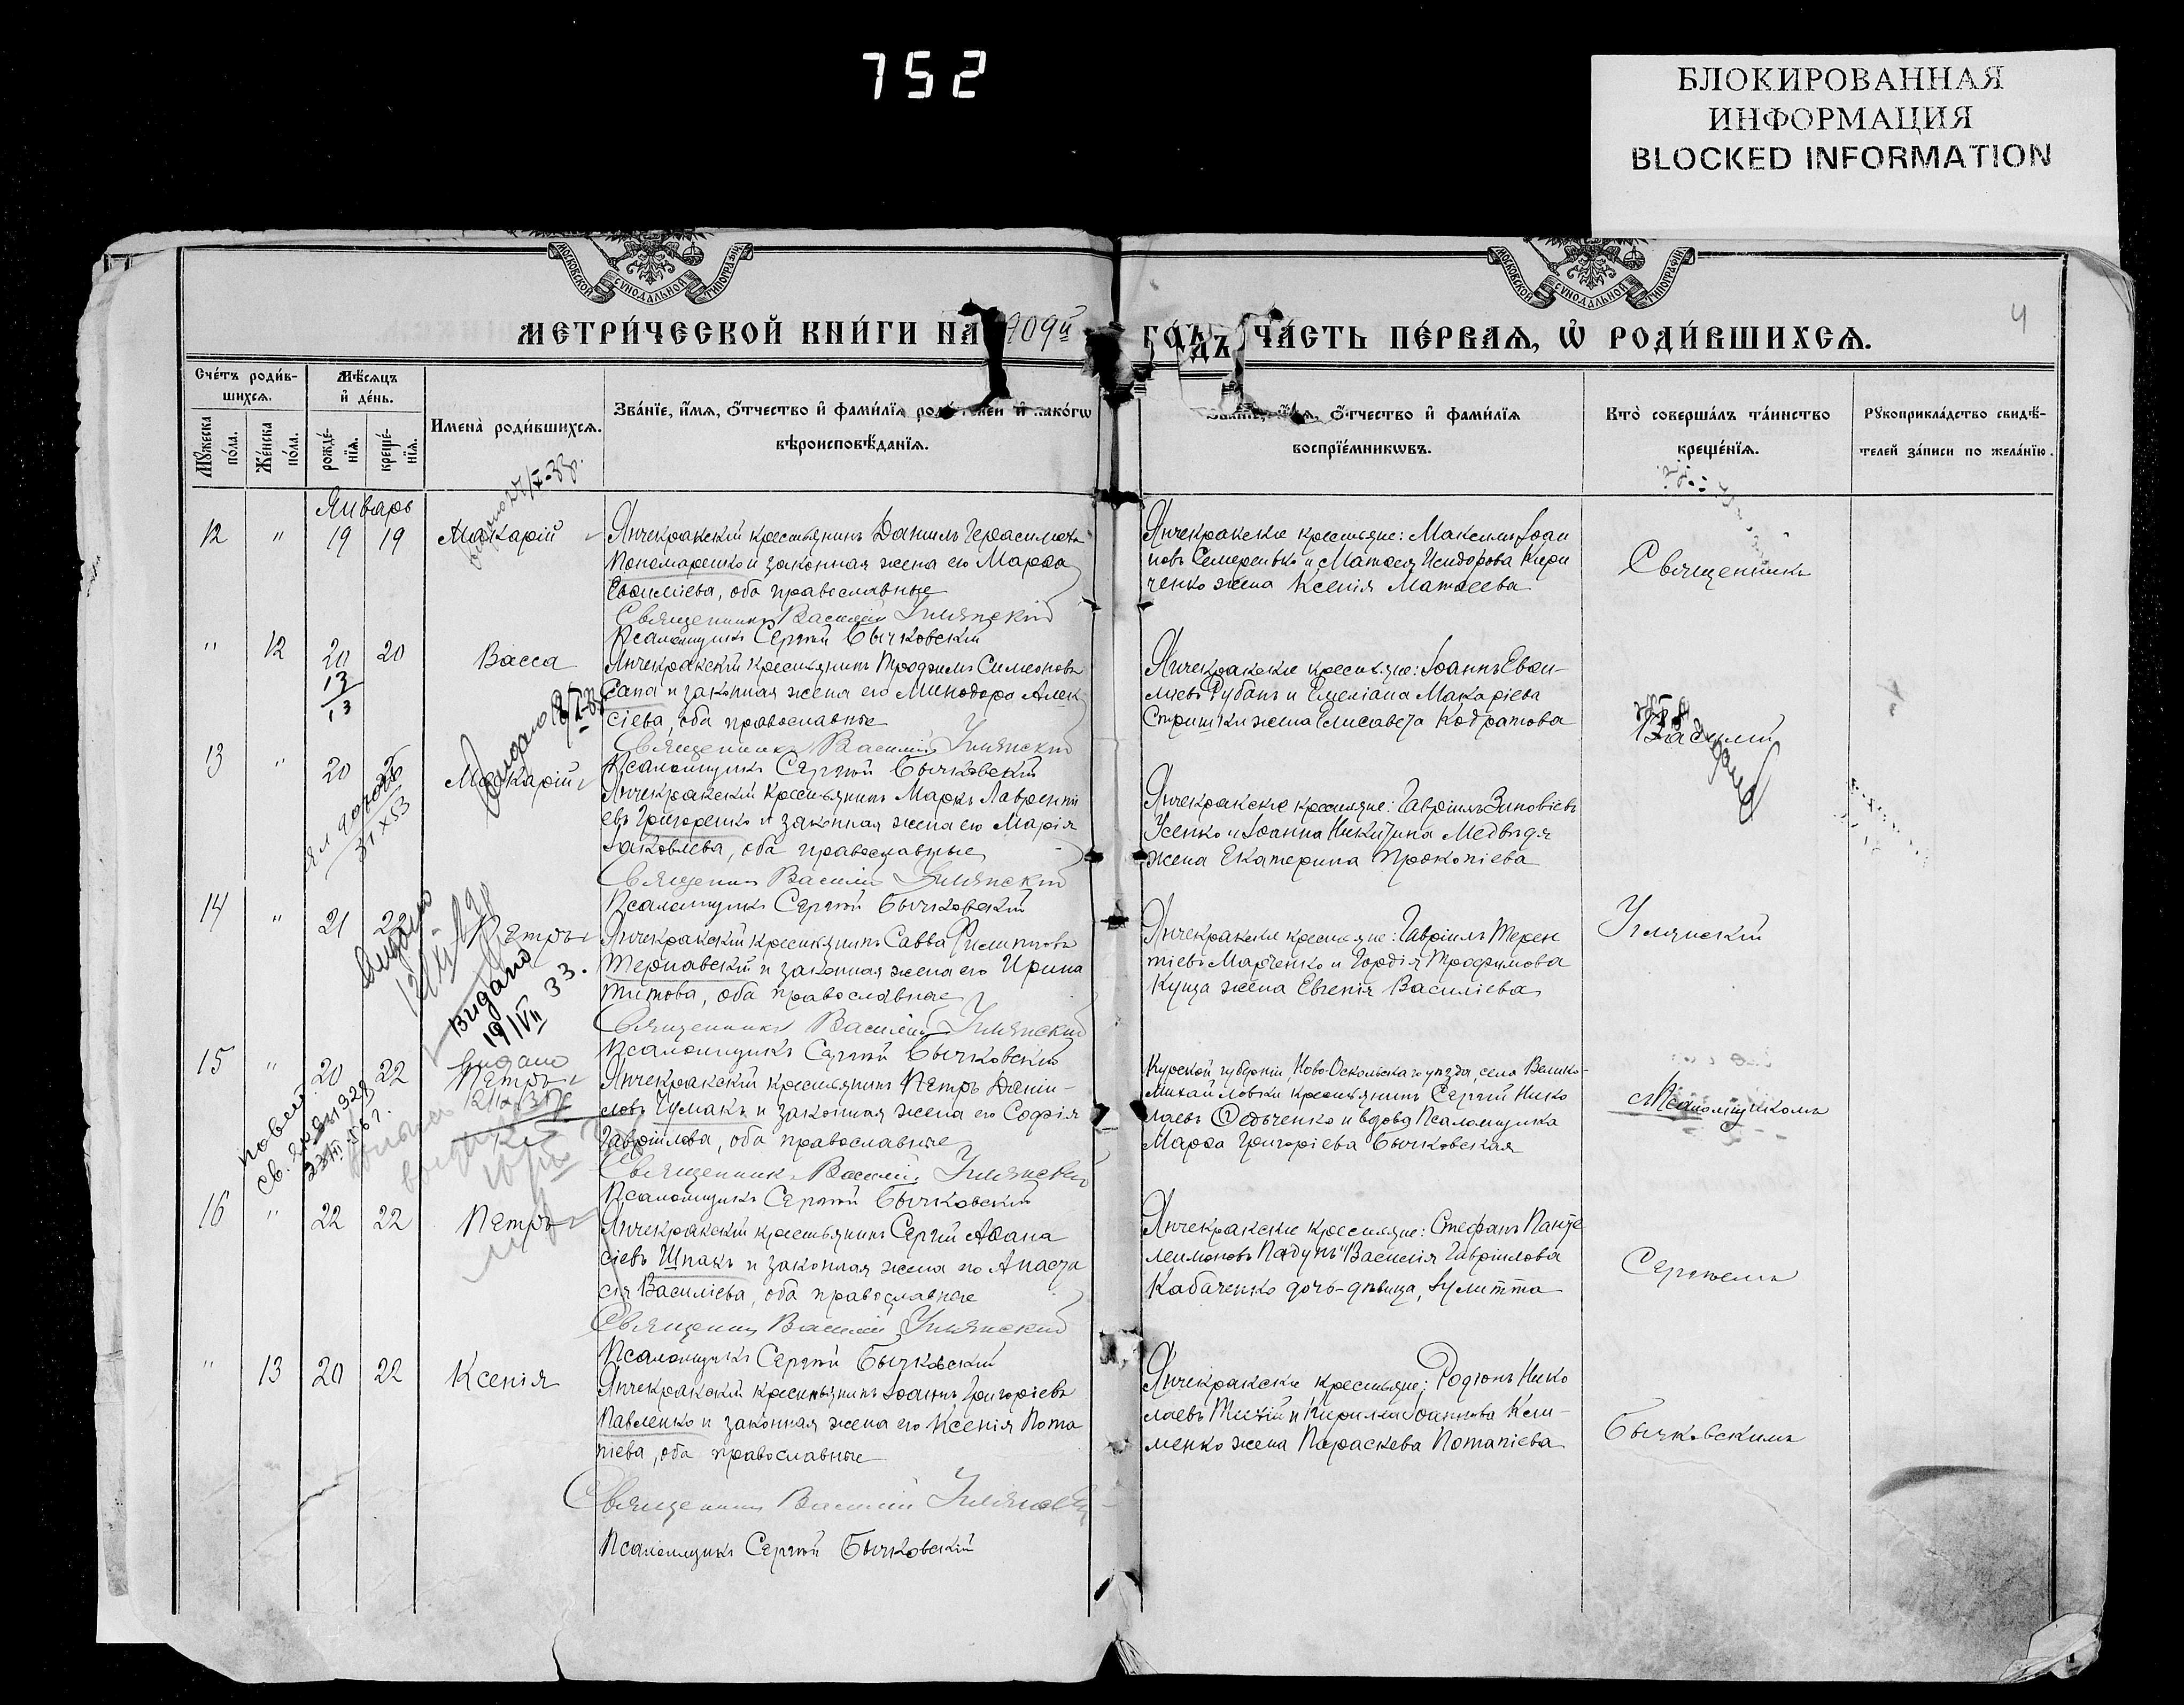 752
БЛОКИРОВАННАЯ
ИНФОРМАЦИЯ
BLOCKED INFORMATION
МОСКОВСКОЙ СУНОДАЛЬНОЙ ТИПОГРАФІИ
МОСКОВСКОЙ СУНОДАЛЬНОЙ ТИПОГРАФІИ
4
МЕТРИ́ЧЕСКОЙ КНИ́ГИ НА 1909й ГО́ДЪ ЧА́СТЬ ПЕ́РВАѦ, Ѡ҆ РОДИ́ВШИХСѦ.
Сче́тъ роди́вшихсѧ.
Мѣ́сѧцъ и҆ де́нь.
Мꙋ́жеска по́ла.
Же́нска по́ла.
рожде́нїѧ.
креще́нїѧ.
Имена̀ роди́вшихсѧ.
Зва́нїе, и҆́мѧ, ѻ҆́тчество и҆ фами́лїѧ роди́телей и҆ како́гѡ
вѣроисповѣ́данїѧ.
Зва́нїе, и҆́мѧ, ѻ҆́тчество и҆ фами́лїѧ
воспрїе́мникѡвъ.
Кто̀ соверша́лъ та́инство
креще́нїѧ.
Рꙋкоприкла́дство свидѣ́телей за́писи по жела́нїю.
Январь
12 " 19 19 Макарій
Янчекракскій крестьянинъ Даніилъ Герасимовъ
Пономаренко и законная жена его Марѳа
Евѳиміева, оба православные
Священникъ Василій
Псаломщикъ Сергѣй Бычковскій
Янчекракскіе крестьяне: Максимъ Іоан
новъ Семеренько и Матѳея Исидорова Кири
ченко жена Ксенія Матѳеева
Священникъ
" 12 20 20 Васса
13
13
Янчекракскій крестьянинъ Трофимъ Симеоновъ
Сапа и законная жена его Минодора Алек
сіева, оба православные
Священникъ Василій
Псаломщикъ Сергѣй Бычковскій
Янчекракскіе крестьяне: Іоаннъ Еван-
Рубанъ и Емеліана Макаріева
жена Елисавета Кодратова
Василій
13 " 20 20 Макарій
31 X 53
Янчекракскій крестьянинъ Маркъ Лавренті
евъ Григоренко и законная жена его Марія
Іаковлева, оба православные
Священникъ Василій
Псаломщикъ Сергѣй Бычковскій
Янчекракскіе крестьяне: Гавріилъ Зиновіевъ
Усенко и Іоанна Никитина Медвидя
жена Екатерина Прокопіева
14 " 21 22 Петръ
Видано
Видано
19/VII 33.
Янчекракскій крестьянинъ Савва Филипповъ
Тернавскій и законная жена его Ирина
Титова, оба православные
Священникъ Василій
Псаломщикъ Сергѣй Бычковскій
Янчекракскіе крестьяне: Гавріилъ Терен
тіевъ Марченко и Гордія Трофимова
Куцa жена Евгенія Василіева
15 " 20 22 Петръ
видано
Янчекракскій крестьянинъ Петръ Даніи-
ловъ Чумакъ и законная жена его Софія
Гавріилова, оба православные
Священникъ Василій
Псаломщикъ Сергѣй Бычковскій
Курской губерніи, Ново-Оскольскаго уѣзда, села Велико-
Михайловки крестьянинъ Сергій Нико
лаевъ Ѳедьченко и вдова Псаломщика
Марѳа Григоріева Бычковская
съ Псаломщикомъ
16 " 22 22 Петръ
Янчекракскій крестьянинъ Сергій Аѳана
сіевъ Шпакъ и законная жена его Анаста
сія Василіева, оба православные
Священникъ Василій
Псаломщикъ Сергѣй Бычковскій
Янчекракскіе крестьяне: Стефанъ Панте
леимоновъ Падунъ и Василія Гавріилова
Кабаченко дочь-дѣвица, Іулитта
Сергѣемъ
" 13 20 22 Ксенія
Янчекракскій крестьянинъ Іоаннъ Григоріевъ
Павленко и законная жена его Ксенія Пота
піева, оба православные
Священникъ Василій
Псаломщикъ Сергѣй Бычковскій
Янчекракскіе крестьяне; Родіонъ Нико
лаевъ и Кирилла Іоаннова Кли-
менко жена Параскева Потапіева
Бычковскимъ